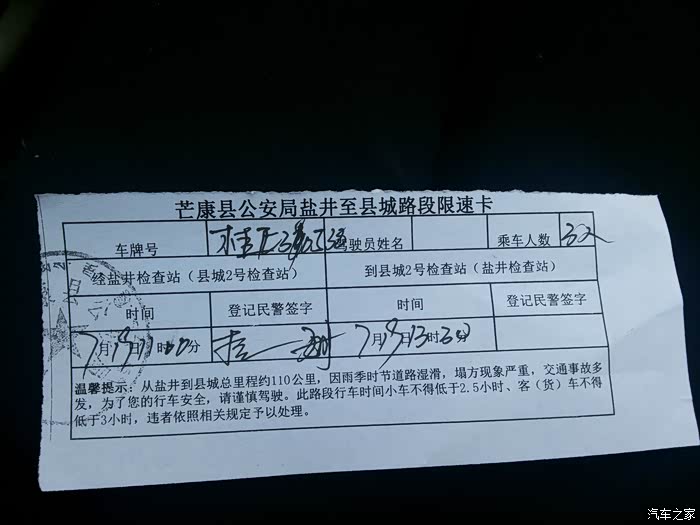 芒康县公安局盐井至县城路段限速卡
车牌号 驾驶员姓名 乘车人数
经盐井检查站（县城2号检查站） 到县城2号检查站（盐井检查站）
时间 登记民警签字 时间 登记民警签字
7月19日11时00分 7月19日13时30分
温馨提示：从盐井到县城总里程约110公里，因雨季时节道路湿滑，塌方现象严重，交通事故多
发，为了您的行车安全，请谨慎驾驶。此路段行车时间小车不得低于2.5小时、客（货）车不得
低于3小时，违者依照相关规定予以处理。
汽车之家